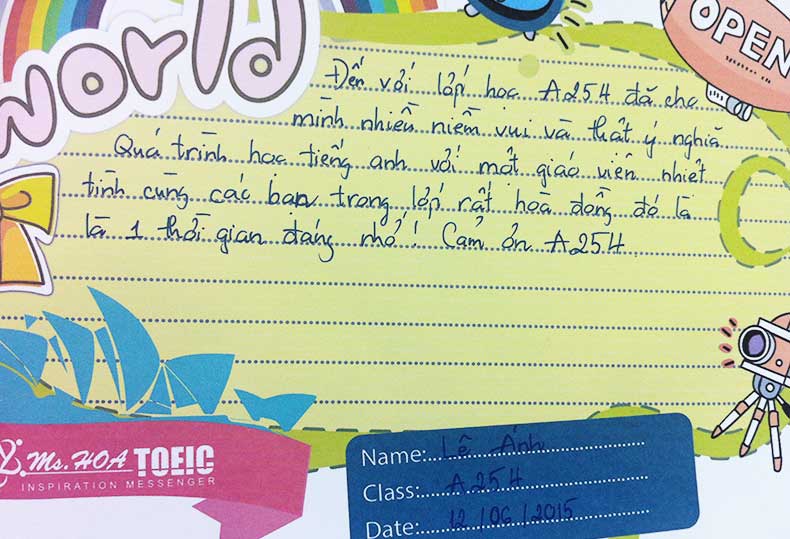 world
OPEN
Đến với lớp học A254 đã cho
mình nhiều niềm vui và thật ý nghĩa
Quá trình học tiếng anh với một giáo viên nhiệt
tình cùng các bạn trong lớp rất hòa đồng đó là
là 1 thời gian đáng nhớ! Cảm ơn A254
Ms.HOA TOEIC
INSPIRATION MESSENGER
Name: Lê Ánh
Class: A254
Date: 12/06/2015